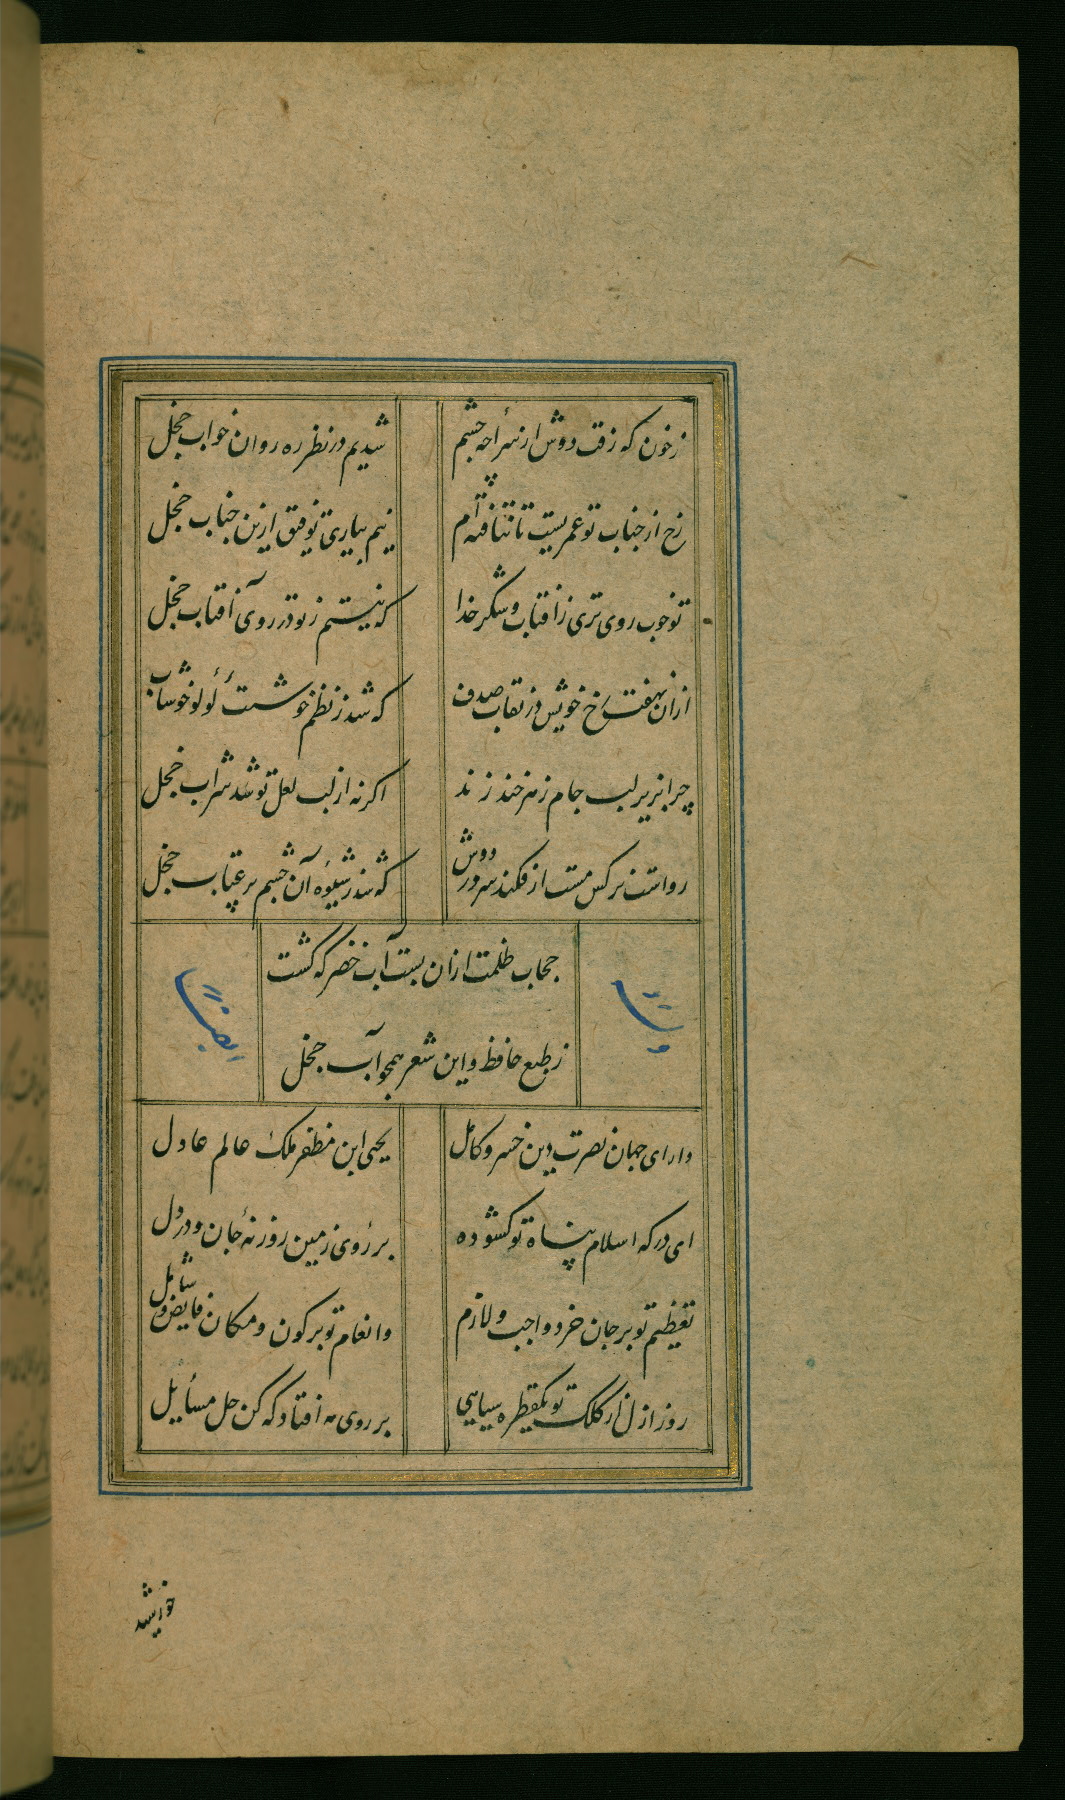 زخون که رفت دوش از سراچه چشم
شدیم در نظر ره روان خواب خجل
رخ از جناب تو عمریست تا نتافته‌ام
نیم بیاری توفیق ازین جناب خجل
تو خوب روی تری ز آفتاب و شکر خدا
که نیستم ز تو در روی آفتاب خجل
ازان نهفت رخ خویش در نقاب صدف
که شد ز نظم خوشت لؤلؤ خوشاب
چرا بزیر لب جام زهر خند زند
اگر نه از لب لعل تو شد شراب خجل
رواست نرکس مست ار فکند سر در دوش
که شد ز شیوه آن چشم پر عتاب خجل
حجاب ظلمت ازان بست آب خضر که گشت
ز طبع حافظ و این شعر همچو آب خجل
وله
ایضا
دارای جهان نصرت دین خسرو کامل
یحیی ابن مظفر ملک عالم عادل
ای درکه اسلام پناه تو کشوده
بر روی زمین روزنه جان و در دل
تعظیم تو بر جان خرد واجب و لازم
وانعام تو بر کون و مکان فایض و شامل
روز ازل از کلک تو یکقطره سیاهی
بر روی مه افتاد که کن حل مسائل
خورشید